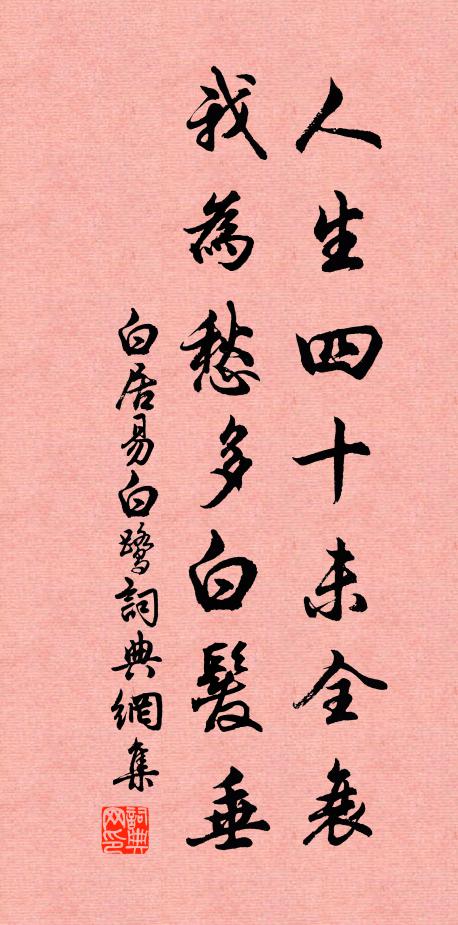 人生四十未全衰
我為愁多白髮垂
白居易白鷺詞典網集
詞典网印